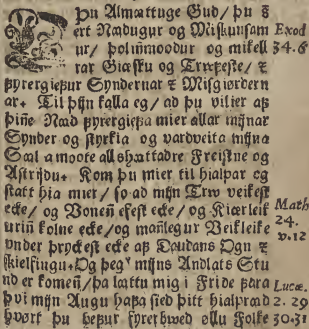 Þu Almættuge Gud / þu s
ert Nædugur og Miskunsam
ur / þolinmoodur og mikell
rar Giæsku og Trwfeste / z
fyrergiefur Syndernar z Misgiørdern
ar. Til þijn kalla eg / ad þu vilier af
þinne Naad fyrergiefa mier allar mijnar
Synder og styrkia og vardveita mijna
Saal a moote allshattadre Freistne og
Astrijdu. Kom þu mier til hialpar og
statt hia mier / so ad mijn Trw veikest
ecke / og Vonen efest ecke / og Kiærleik
urin kolne ecke / og manlegur Veikleike
vnder þryckest ecke af Daudans Ogn z
skielfingu. Og þegr mijns Andlats Stu
nd er komen / þa lattu mig i Fride fara
þvi mijn Augu hafa sied þitt hialpræd
hvørt þu hefur fyrerbwed øllu Folke
Exod
34.6
Math
24.
v.12
Lucæ.
2. 29
30.31